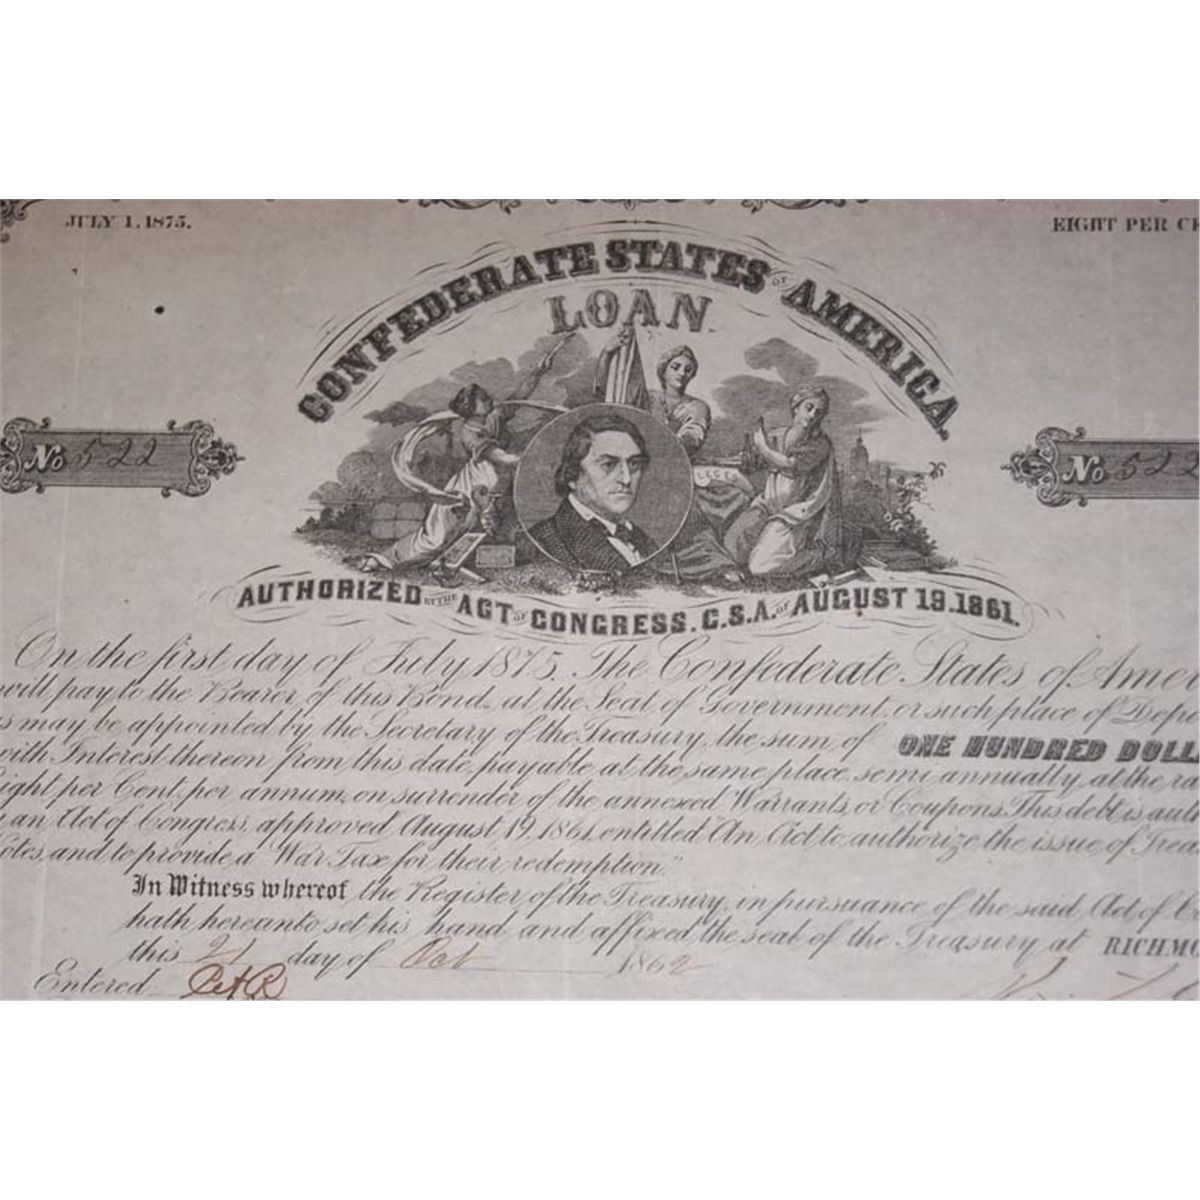 JULY 1, 1875.
EIGHT PER CE
CONFEDERATE STATES OF AMERICA.
LOAN.
No 522
No 522
AUTHORIZED BY THE ACT OF CONGRESS. C.S.A. OF AUGUST 19. 1861.
On the first day of July 1875. The Confederate States of Amer
will pay to the Bearer of this Bond, at the Seat of Government, or such place of Depo
s may be appointed by the Secretary of the Treasury, the sum of ONE HUNDRED DOLL
with Interest thereon from this date, payable at the same place semi annually, at the ra
ight per Cent. per annum, on surrender of the annexed Warrants, or Coupons. This debt is auth
y an Act of Congress, approved August 19, 1861, entitled "An Act to authorize the issue of Trea
otes, and to provide a War Tax for their redemption."
In Witness whereof the Register of the Treasury, in pursuance of the said Act of C
hath hereunto set his hand and affixed, the seal of the Treasury at RICHMO
this 21 day of Oct 1862
Entered